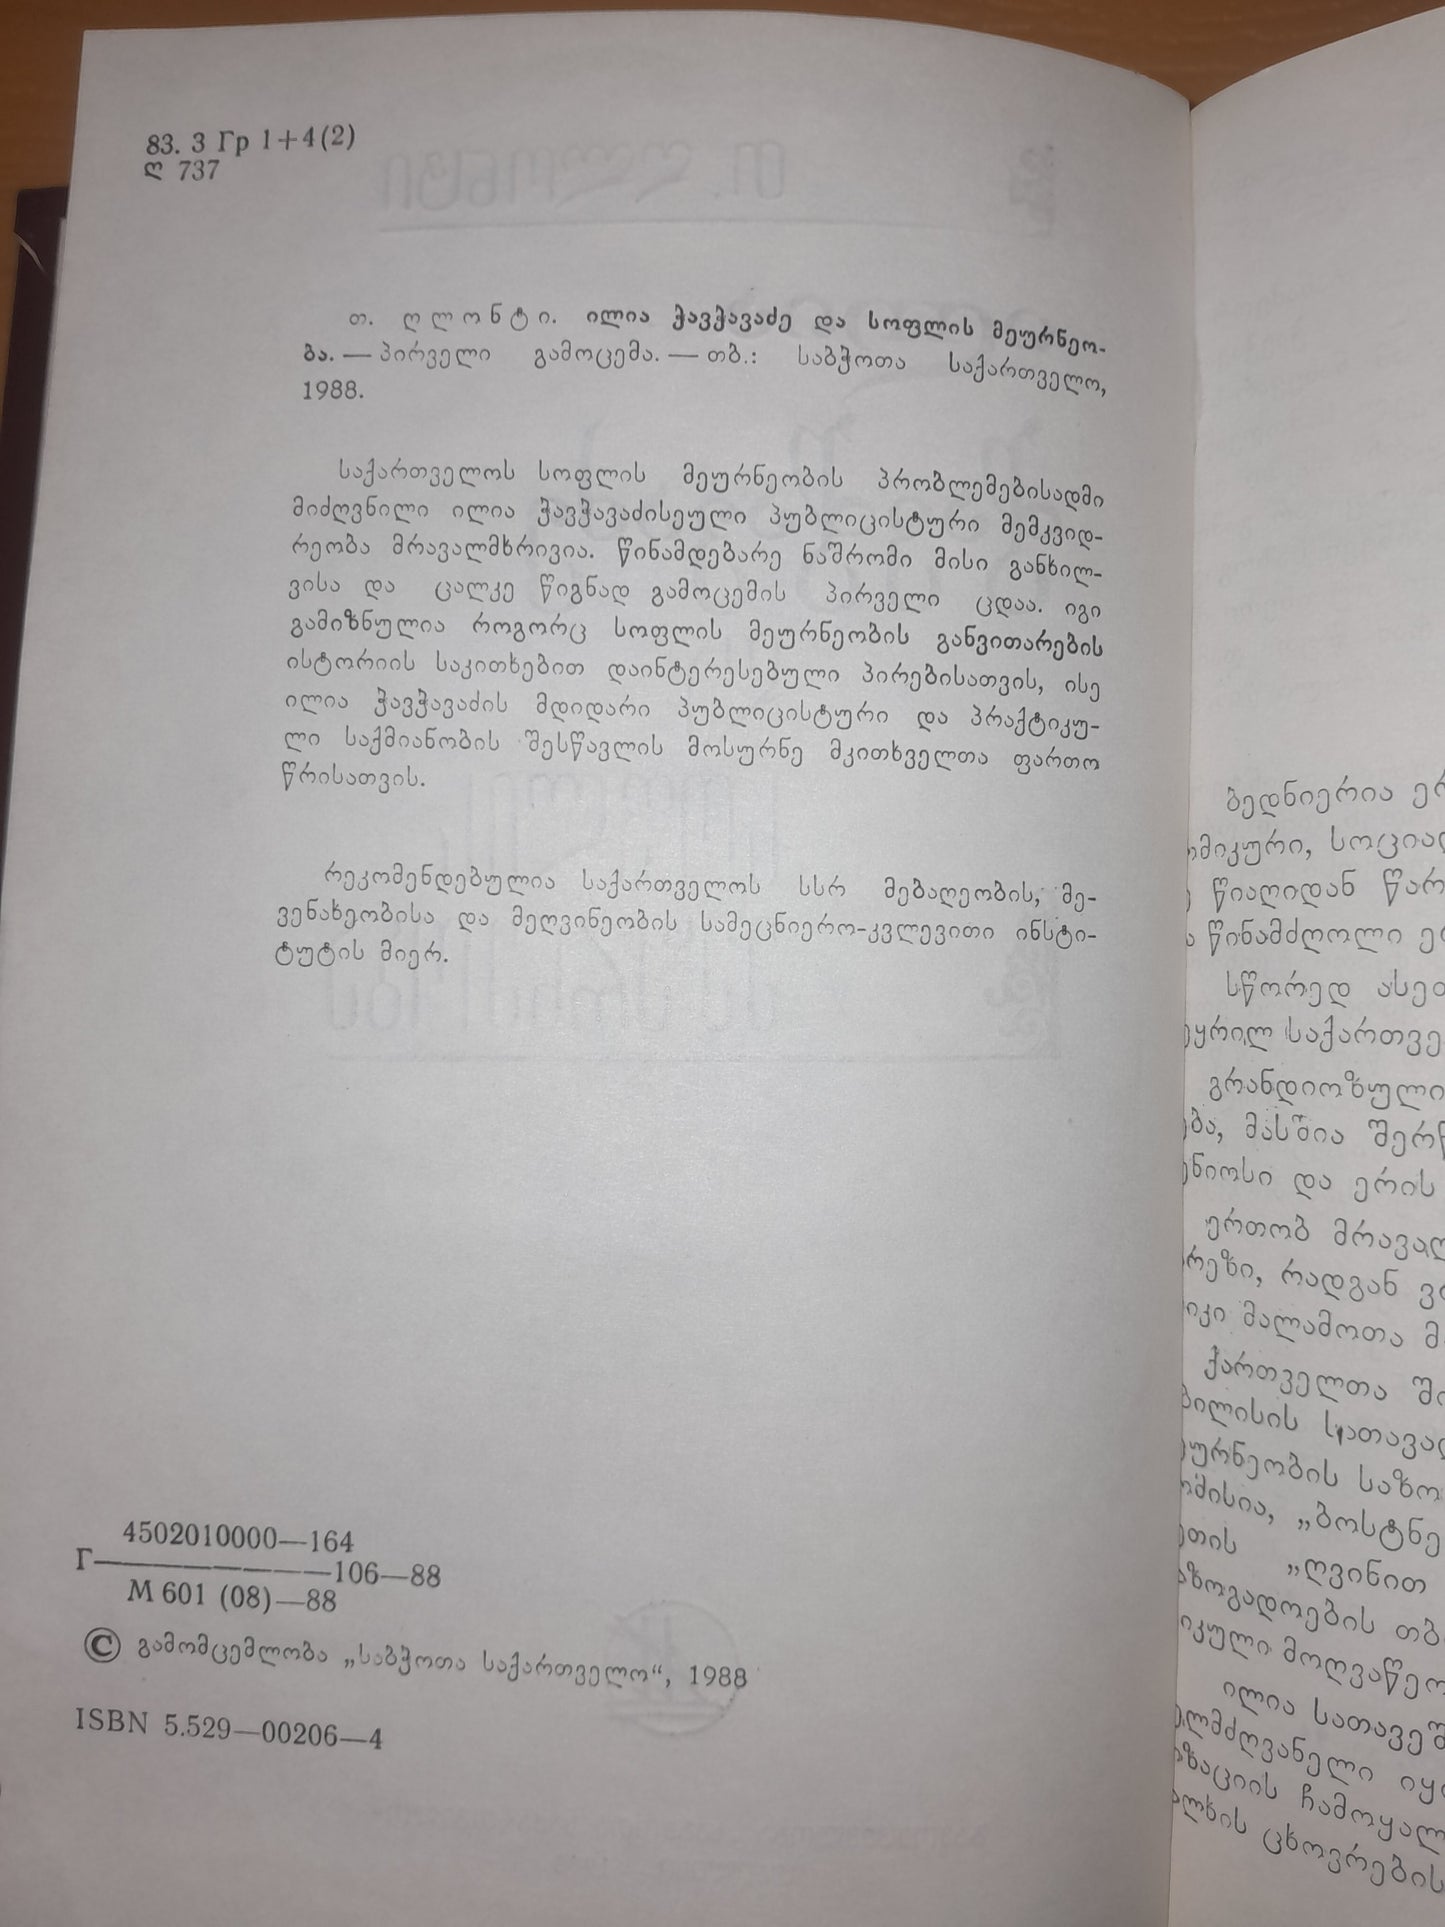 83. 3 Гр 1+4(2)
ღ 737
თ. ღლონტი. ილია ჭავჭავაძე და სოფლის მეურნეო-
ბა. — პირველი გამოცემა. — თბ.: საბჭოთა საქართველო,
1988.
საქართველოს სოფლის მეურნეობის პრობლემებისადმი
მიძღვნილი ილია ჭავჭავაძისეული პუბლიცისტური მემკვიდ-
რეობა მრავალმხრივია. წინამდებარე ნაშრომი მისი განხილ-
ვისა და ცალკე წიგნად გამოცემის პირველი ცდაა. იგი
გამიზნულია როგორც სოფლის მეურნეობის განვითარების
ისტორიის საკითხებით დაინტერესებული პირებისათვის, ისე
ილია ჭავჭავაძის მდიდარი პუბლიცისტური და პრაქტიკუ-
ლი საქმიანობის შესწავლის მოსურნე მკითხველთა ფართო
წრისათვის.
რეკომენდებულია საქართველოს სსრ მებაღეობის, მე-
ვენახეობისა და მეღვინეობის სამეცნიერო-კვლევითი ინსტი-
ტუტის მიერ.
4502010000—164
Г————————106—88
М 601 (08)—88
© გამომცემლობა „საბჭოთა საქართველო“, 1988
ISBN 5.529—00206—4
ბედნიერია
სოციალ
წიაღიდან
წინამძღოლი
სწორედ
გრანდიოზული
მასშია
და ერის
ერთობ
რადგან
მალამოთა
ქართველთა
სათავად
„ბოსტნე
„ღვინით
ილია სათავეშ
ჩამოყალ
ცხოვრების